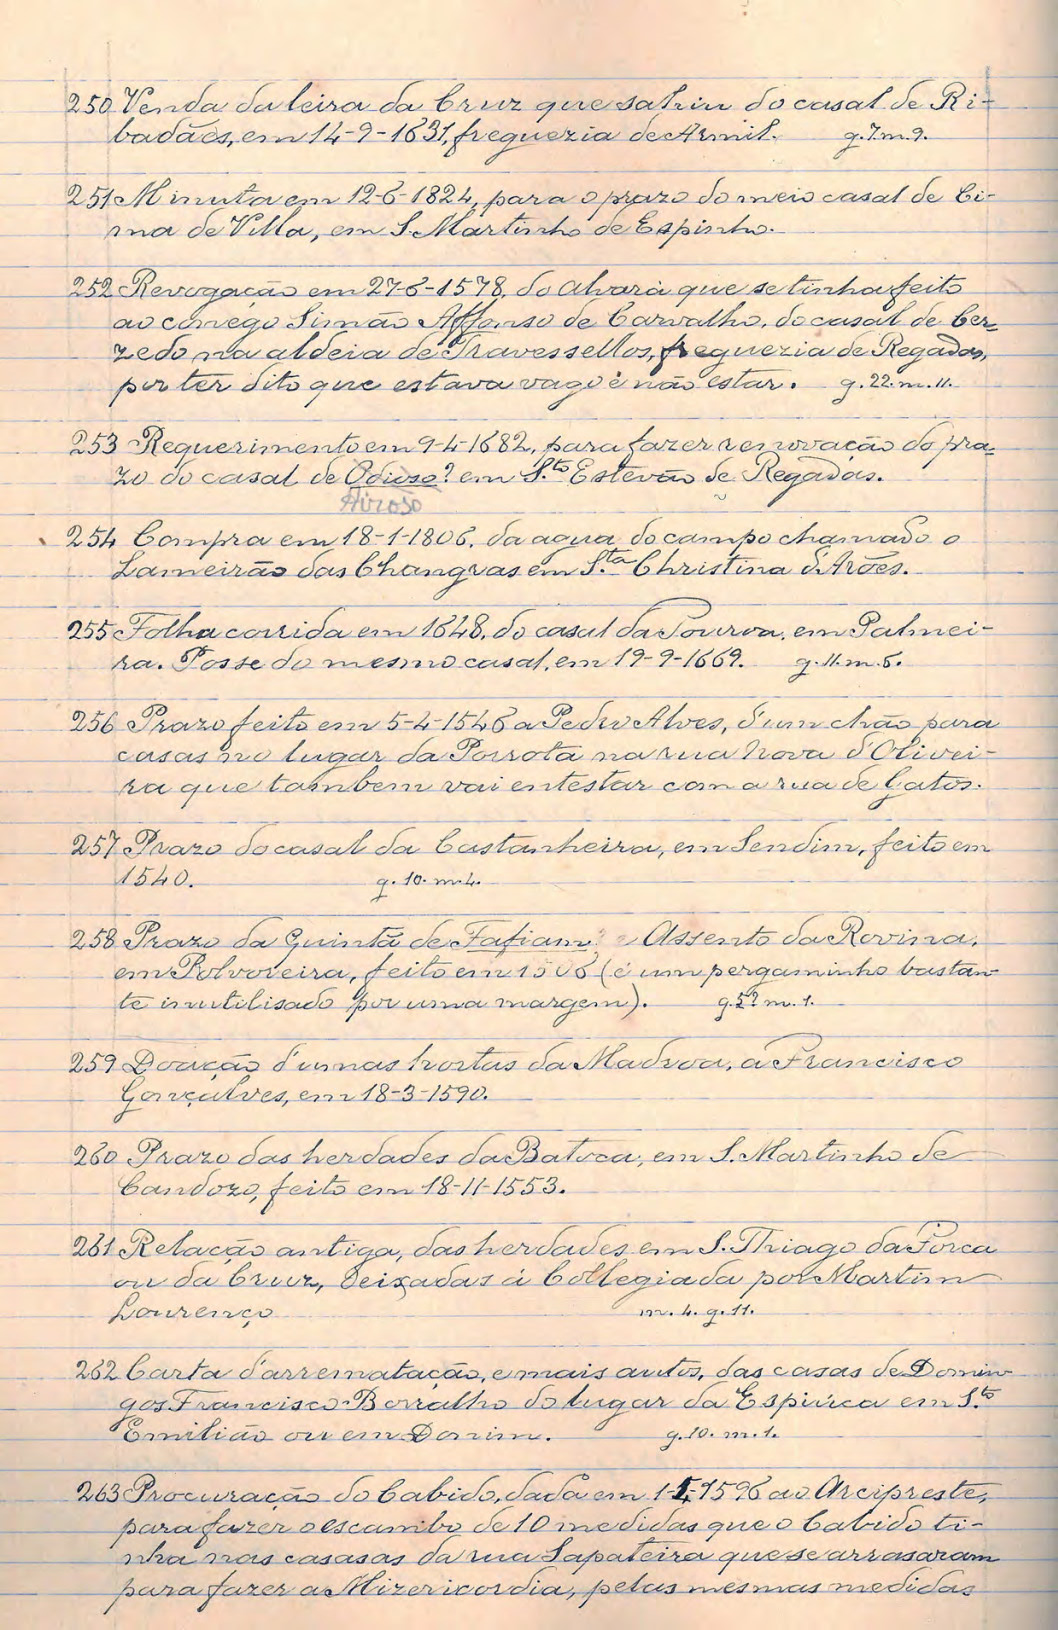 250 Venda da leira da Cruz que sahiu do casal de Ri-
badães, em 14-9-1631, freguezia de Armil. g. 7. m. 9.
251 Minuta em 12-6-1824, para o prazo do meio casal de Ci-
ma de Villa, em S. Martinho de Espinho.
252 Revogação em 27-6-1578, do alvará que se tinha feito
ao conego Simão Affonso de Carvalho, do casal de Cer-
zedo na aldeia de Travessellos, freguezia de Regadas,
por ter dito que estava vago e não estar. g. 22. m. 11.
253 Requerimento em 9-4-1682, para fazer renovação do pra-
zo do casal de Odioso? em S.to Estevão de Regadas.
Airoso
254 Compra em 18-1-1806, da agua do campo chamado o
Lameirão das Changuas em S.ta Christina d'Arões.
255 Folha corrida em 1648, do casal da Pourroa, em Palmei-
ra. Posse do mesmo casal, em 19-9-1669. g. 11. m. 5.
256 Prazo feito em 5-4-1546 a Pedro Alves, d'um chão para
casas no lugar da Porrota na rua Nova d'Olivei-
ra que tambem vai entestar com a rua de Gatos.
257 Prazo do casal da Castanheira, em Sendim, feito em
1540. g. 10. m. 4.
258 Prazo da Quintã de Fafiam e Assento da Rovina,
em Polvoreira, feito em 1506 (é um pergaminho bastan-
te inutilisado por uma margem). g. 5? m. 1.
259 Doação d'umas hortas da Madroa, a Francisco
Gonçalves, em 18-3-1590.
260 Prazo das herdades da Batoca, em S. Martinho de
Candozo, feito em 18-11-1553.
261 Relação antiga, das herdades em S. Thiago da Forca
ou da Cruz, deixadas á Collegiada por Martim
Lourenço m. 4. g. 11.
262 Carta d'arrematação, e mais autos, das casas de Domin-
gos Francisco Borralho do lugar da Espiúca em S.to
Emilião ou em Donim. g. 10. m. 1.
263 Procuração do Cabido, dada em 1-5-1596 ao Arcipreste,
para fazer o escambo de 10 medidas que o Cabido ti-
nha nas casasas da rua Sapateira que se arrasaram
para fazer a Mizericordia, pelas mesmas medidas